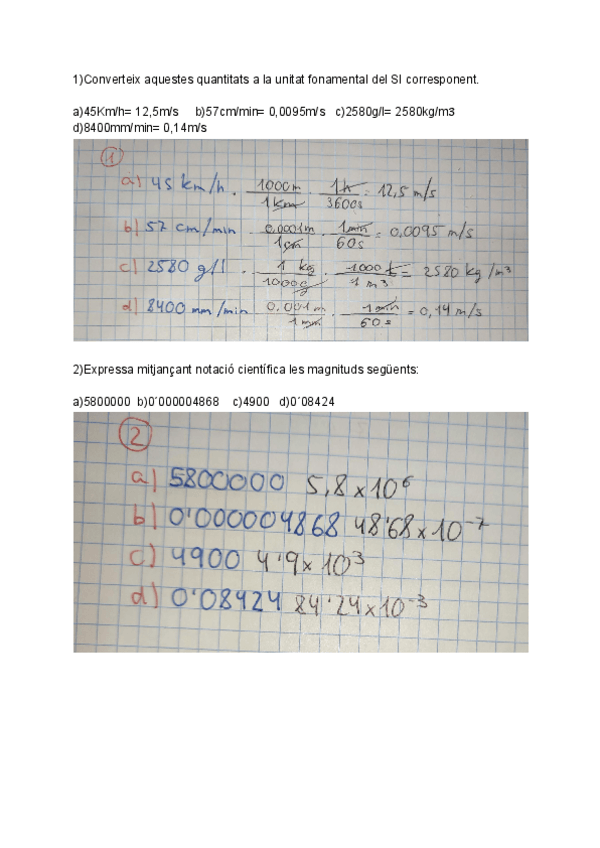 1)Converteix aquestes quantitats a la unitat fonamental del SI corresponent.
a)45Km/h= 12,5m/s b)57cm/min= 0,0095m/s c)2580g/l= 2580kg/m3
d)8400mm/min= 0,14m/s
1
a) 45 km/h · 1000m/1km · 1h/3600s = 12,5 m/s
b) 57 cm/min · 0,0001m/1cm · 1min/60s = 0,0095 m/s
c) 2580 g/l · 1 kg/1000g · 1000 l/1 m³ = 2580 kg/m³
d) 8400 mm/min 0,001m/1mm · 1min/60s = 0,14 m/s
2)Expressa mitjançant notació científica les magnituds següents:
a)5800000 b)0´000004868 c)4900 d)0´08424
2
a) 5800000 5,8 x 10⁶
b) 0'000004868 48'68 x 10⁻⁷
c) 4900 4'9 x 10³
d) 0'08424 84'24 x 10⁻³